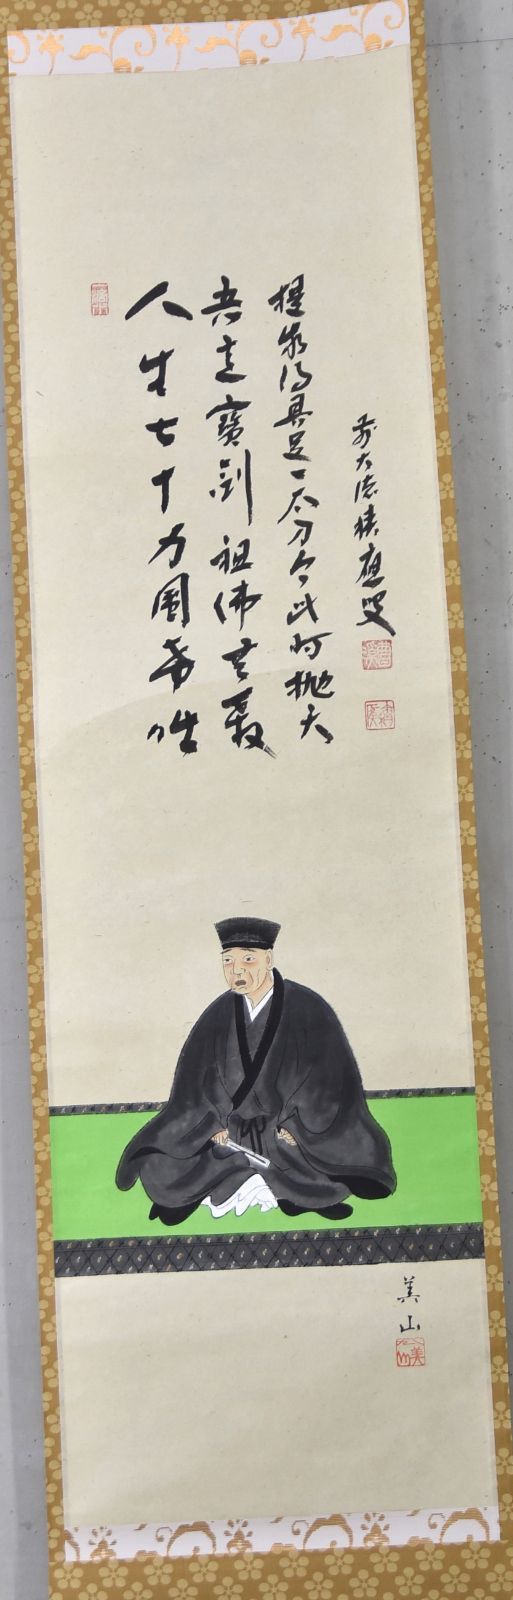 人生七十力圍希咄
吾這寶劍祖佛共殺
提我得具足一太刀今此時抛天
前大徳積應叟
美山
美山